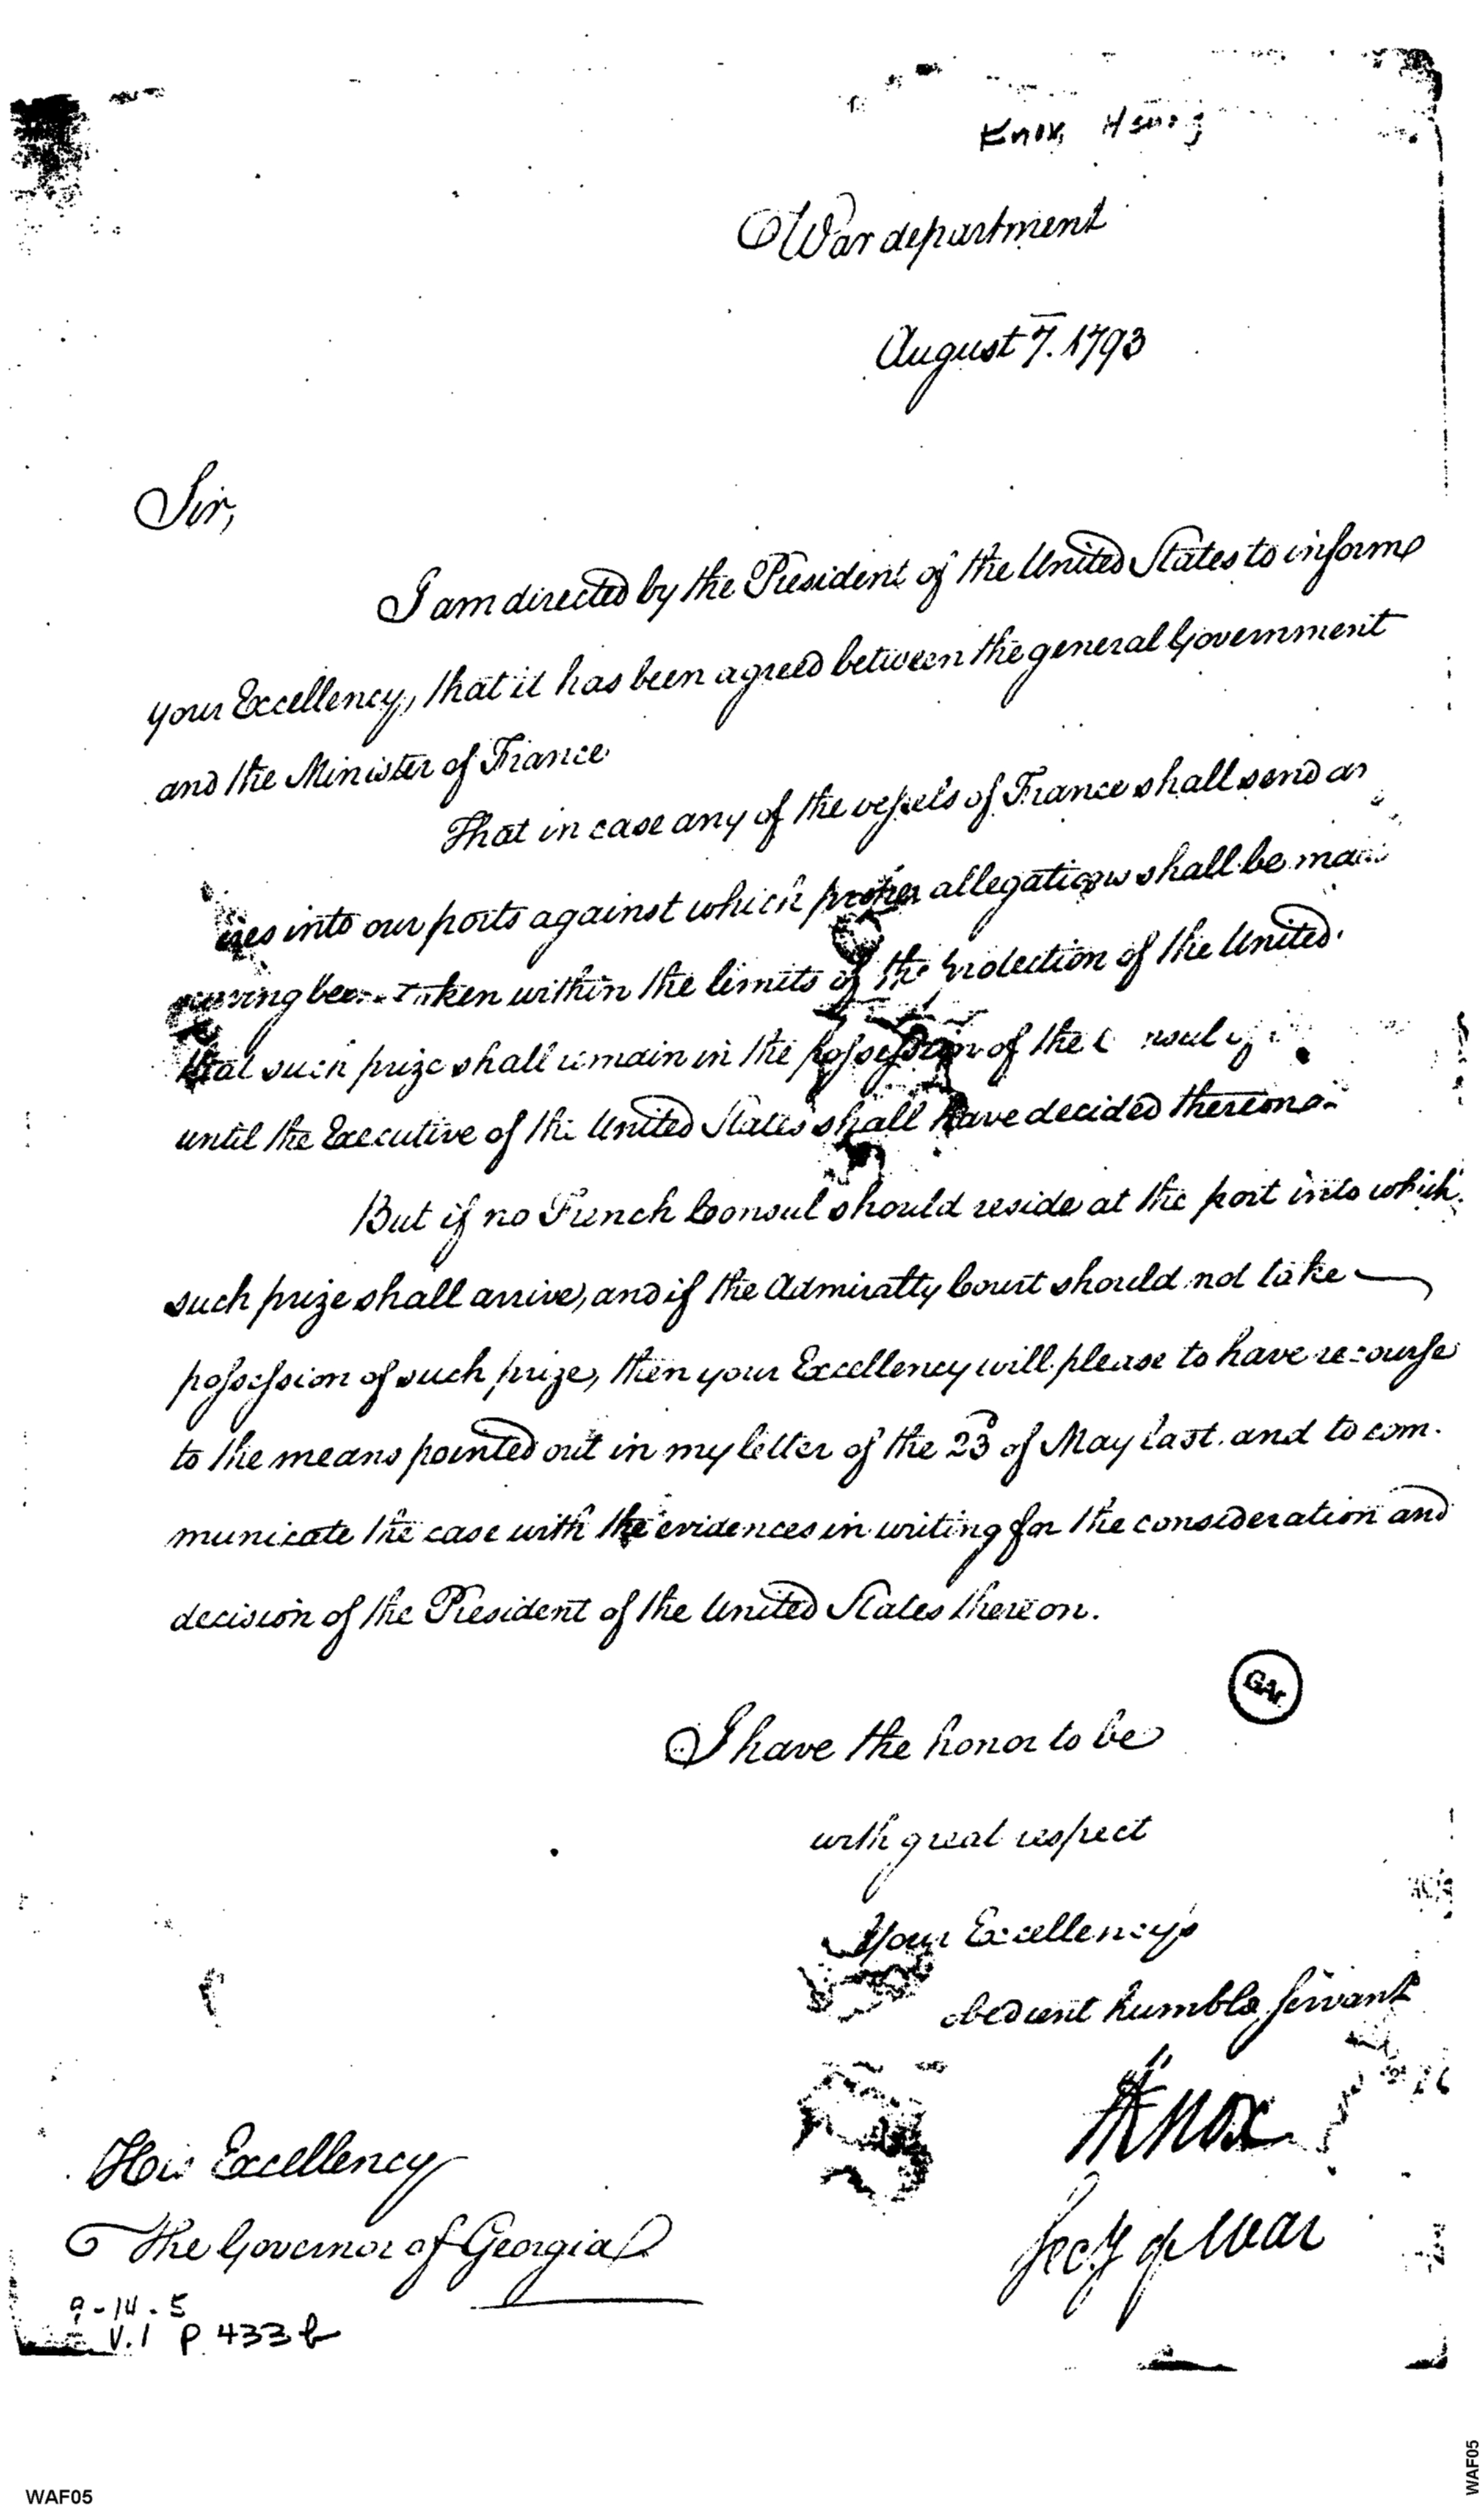 Knox, Henry
War department
August 7. 1793
Sir,
I am directed by the President of the United States to inform
your Excellency, that it has been agreed between the general Government
and the Minister of France
That in case any of the vessels of France shall send
into our ports against which allegations shall be
taken within the limits of the protection of the United
that such prize shall remain in the possession of the
until the Executive of the United States shall have decided thereon.
But if no French Consul should reside at the port into which
such prize shall arrive, and if the Admiralty Court should not take
possession of such prize, then your Excellency will please to have recourse
to the means pointed out in my letter of the 23d of May last. and to com-
municate the case with the evidences in writing for the consideration and
decision of the President of the United States thereon.
GAr.
I have the honor to be
with great respect
Your Excellency's
obedient humble servant
HKnox
Secy of War
His Excellency
The Governor of Georgia
9-14-5
V.1 P. 433 b
WAF05
WAF05